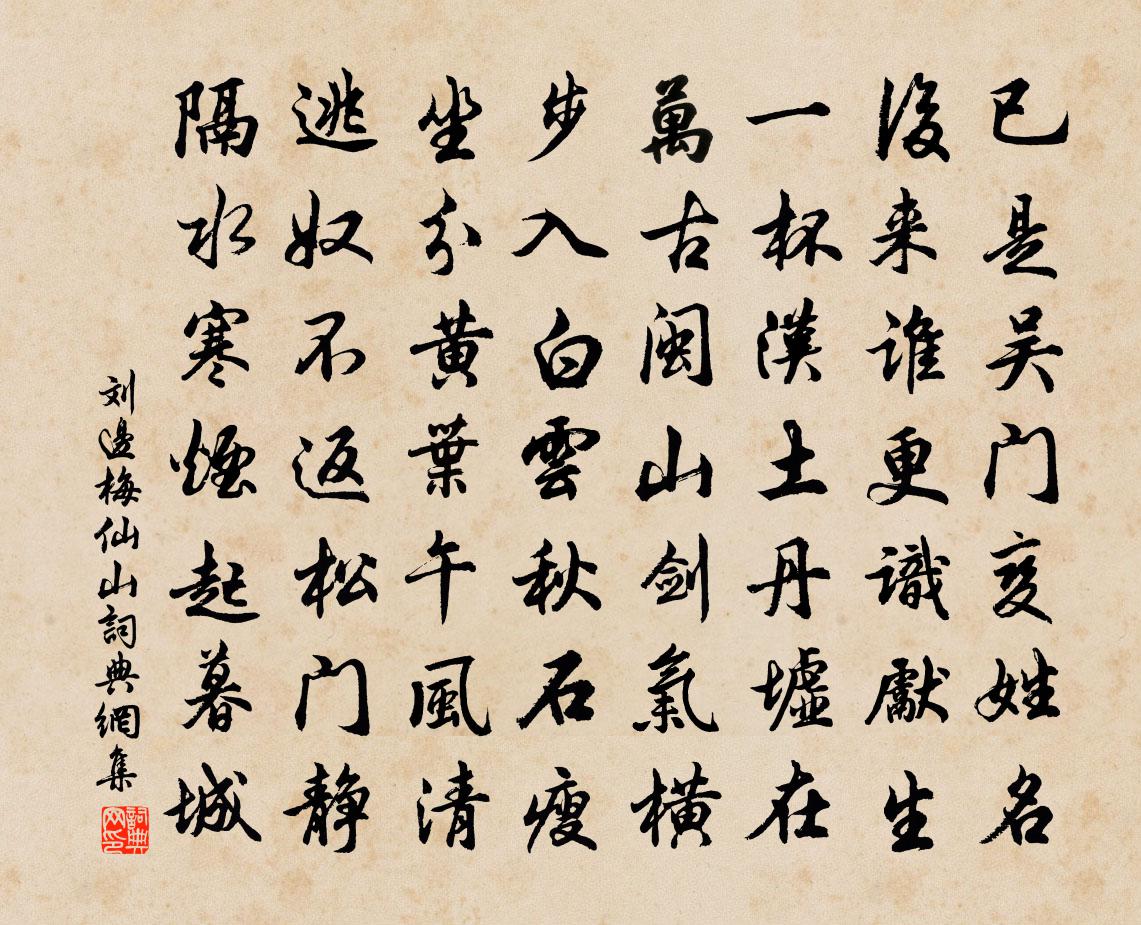 已是吴门变姓名
後来谁更識獻生
一杯漢土丹墟在
萬古闽山剑氣横
步入白雲秋石瘦
坐分黄葉午風清
逃奴不返松门静
隔水寒煙起暮城
刘邊梅仙山詞典網集
詞典网印